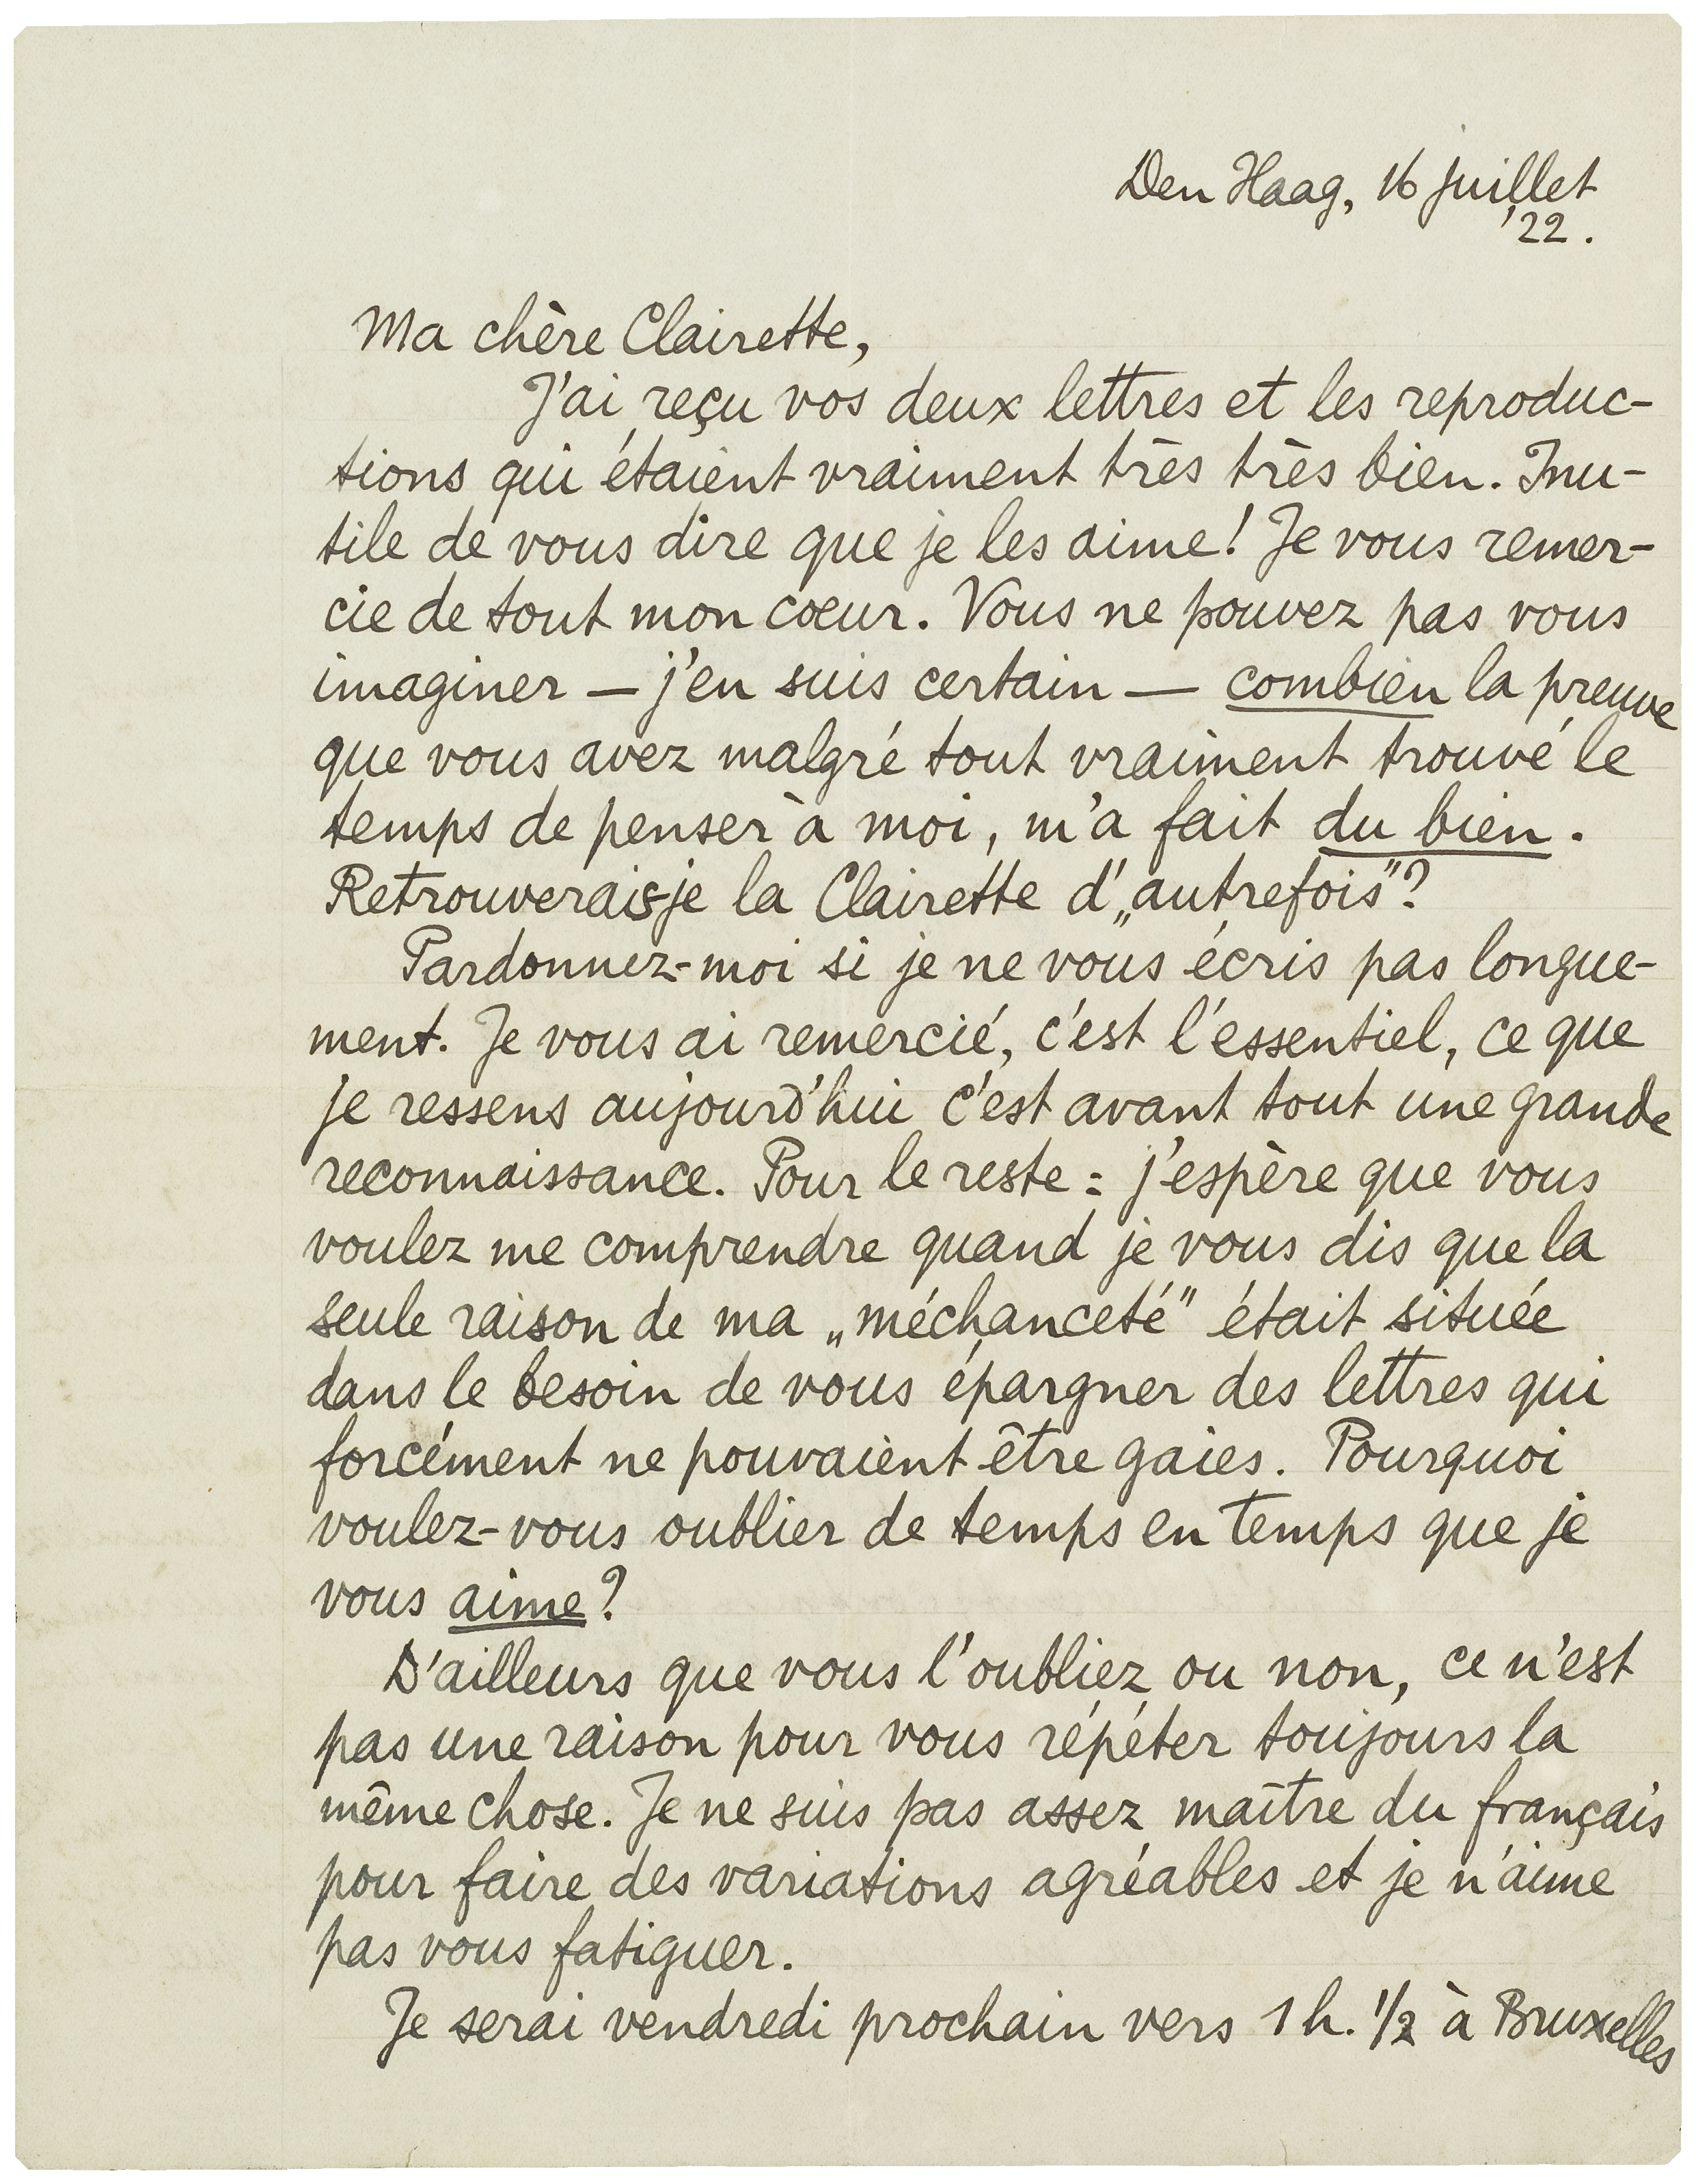 Den Haag, 16 juillet
'22.
Ma chère Clairette,
J'ai reçu vos deux lettres et les reproduc-
tions qui étaient vraiment très très bien. Inu-
tile de vous dire que je les aime! Je vous remer-
cie de tout mon coeur. Vous ne pouvez pas vous
imaginer — j'en suis certain — combien la preuve
que vous avez malgré tout vraiment trouvé le
temps de penser à moi, m'a fait du bien.
Retrouverais-je la Clairette d'„autrefois"?
Pardonnez-moi si je ne vous écris pas longue-
ment. Je vous ai remercié, c'est l'essentiel, ce que
je ressens aujourd'hui c'est avant tout une grande
reconnaissance. Pour le reste: j'espère que vous
voulez me comprendre quand je vous dis que la
seule raison de ma „méchanceté" était située
dans le besoin de vous épargner des lettres qui
forcément ne pouvaient être gaies. Pourquoi
voulez-vous oublier de temps en temps que je
vous aime?
D'ailleurs que vous l'oubliez ou non, ce n'est
pas une raison pour vous répéter toujours la
même chose. Je ne suis pas assez maître du français
pour faire des variations agréables et je n'aime
pas vous fatiguer.
Je serai vendredi prochain vers 1 h. 1/2 à Bruxelles